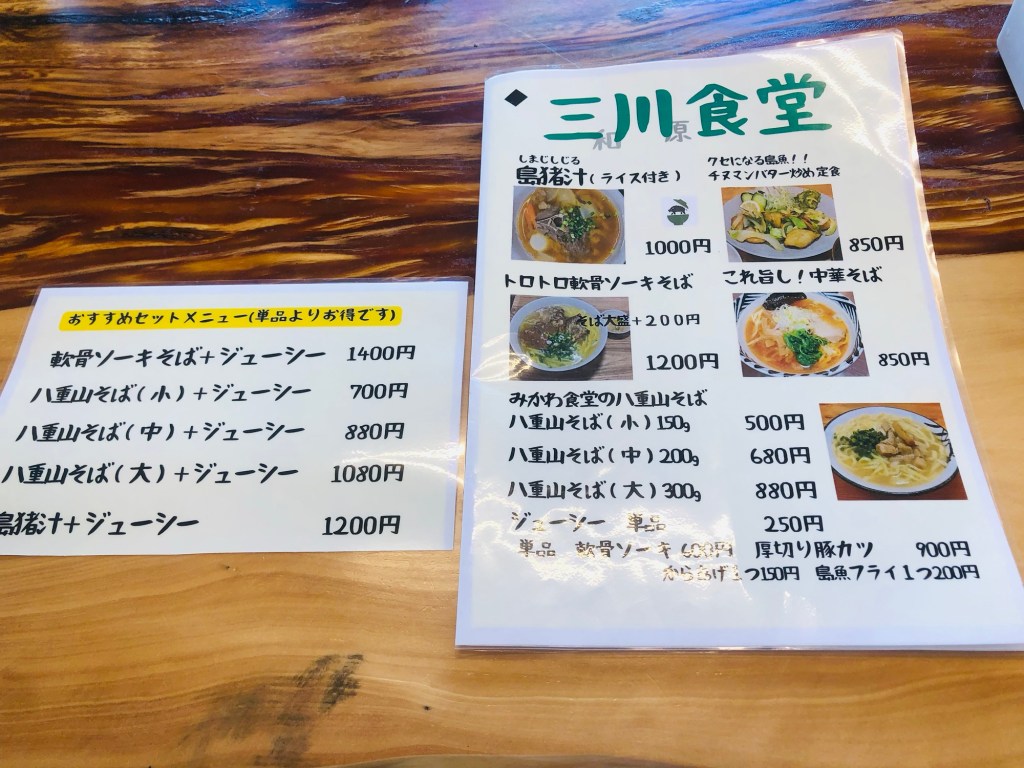 おすすめセットメニュー(単品よりお得です)
軟骨ソーキそば+ジューシー 1400円
八重山そば(小)+ジューシー 700円
八重山そば(中)+ジューシー 880円
八重山そば(大)+ジューシー 1080円
島猪汁+ジューシー 1200円
◆ 三川食堂
和 原
しまじしじる
島猪汁(ライス付き)
1000円
クセになる島魚!!
チヌマンバター炒め定食
850円
トロトロ軟骨ソーキそば
そば大盛+200円
1200円
これ旨し!中華そば
850円
みかわ食堂の八重山そば
八重山そば(小)150g 500円
八重山そば(中)200g 680円
八重山そば(大)300g 880円
ジューシー 単品 250円
単品 軟骨ソーキ 600円 厚切り豚カツ 900円
からあげ1つ150円 島魚フライ1つ200円